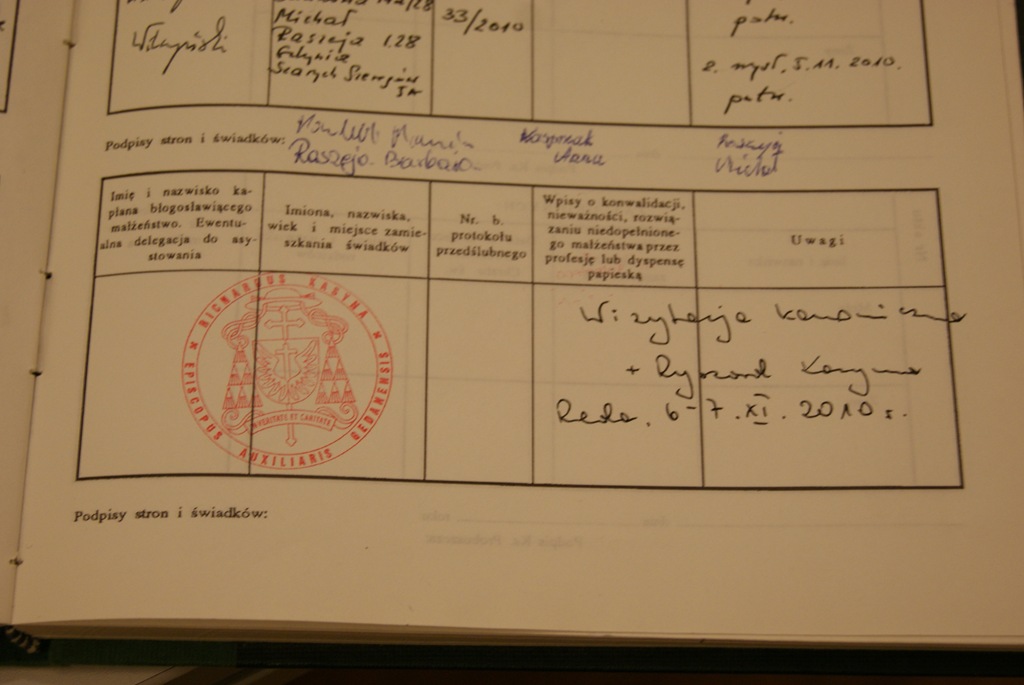 Michał
Raszeja l.28
33/2010
patr.
2. 5.11.2010.
patr.
Podpisy stron i świadków:
Raszeja Barbara
Kasprzak
Anna
Raszeja
Michał
Imię i nazwisko ka-
płana błogosławiącego
małżeństwo. Ewentu-
alna delegacja do asy-
stowania
Imiona, nazwiska,
wiek i miejsce zamie-
szkania świadków
Nr. b.
protokołu
przedślubnego
Wpisy o konwalidacji,
nieważności, rozwią-
zaniu niedopełnione-
go małżeństwa przez
profesję lub dyspensę
papieską
Uwagi
RICHARDUS KASYNA
EPISCOPUS AUXILIARIS GEDANENSIS
IN VERITATE ET CARITATE
Wizytacja kanoniczna
+ Ryszard Kasyna
Reda, 6-7.XI.2010 r.
Podpisy stron i świadków: